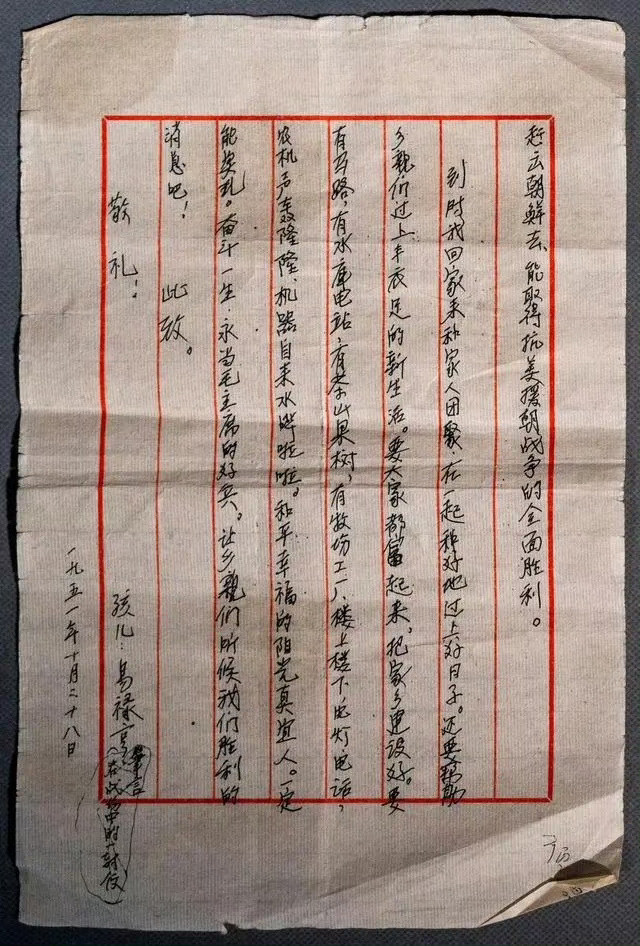 赶云朝鲜去,能取得抗美援朝战争的全面胜利。
到时我回家来和家人团聚,在一起种好地过上好日子。还要帮助
乡亲们过上丰衣足的新生活。要大家都富起来,把家乡建设好。要
有马路,有水库电站,有茶山果树,有牧场工厂,楼上楼下,电灯电话,
农机声轰隆隆,机器自来水哗啦啦。和平幸福的阳光真宜人。定
能实礼。奋斗一生,永当毛主席的好兵。让乡亲们听候我们胜利的
消息吧!
此致。
敬礼!
孩儿:易禄亨
(在战场中的一封信
一九五一年十月二十八日